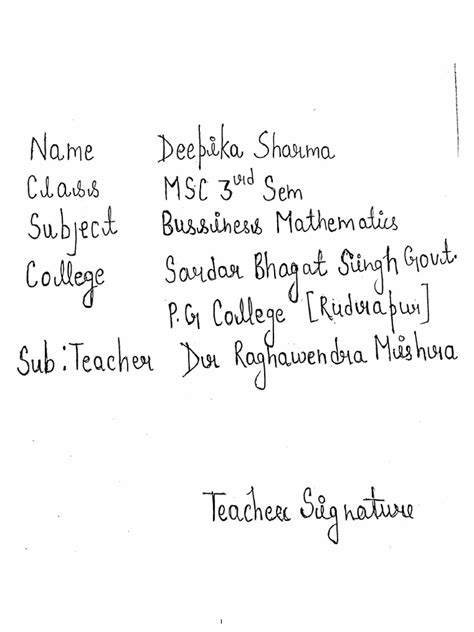 Name Deepika Sharma
Class MSC 3rd Sem
Subject Bussiness Mathematics
College Sardar Bhagat Singh Govt.
P.G College [Rudrapur]
Sub: Teacher Dr Raghawendra Mishra
Teacher Signature
1